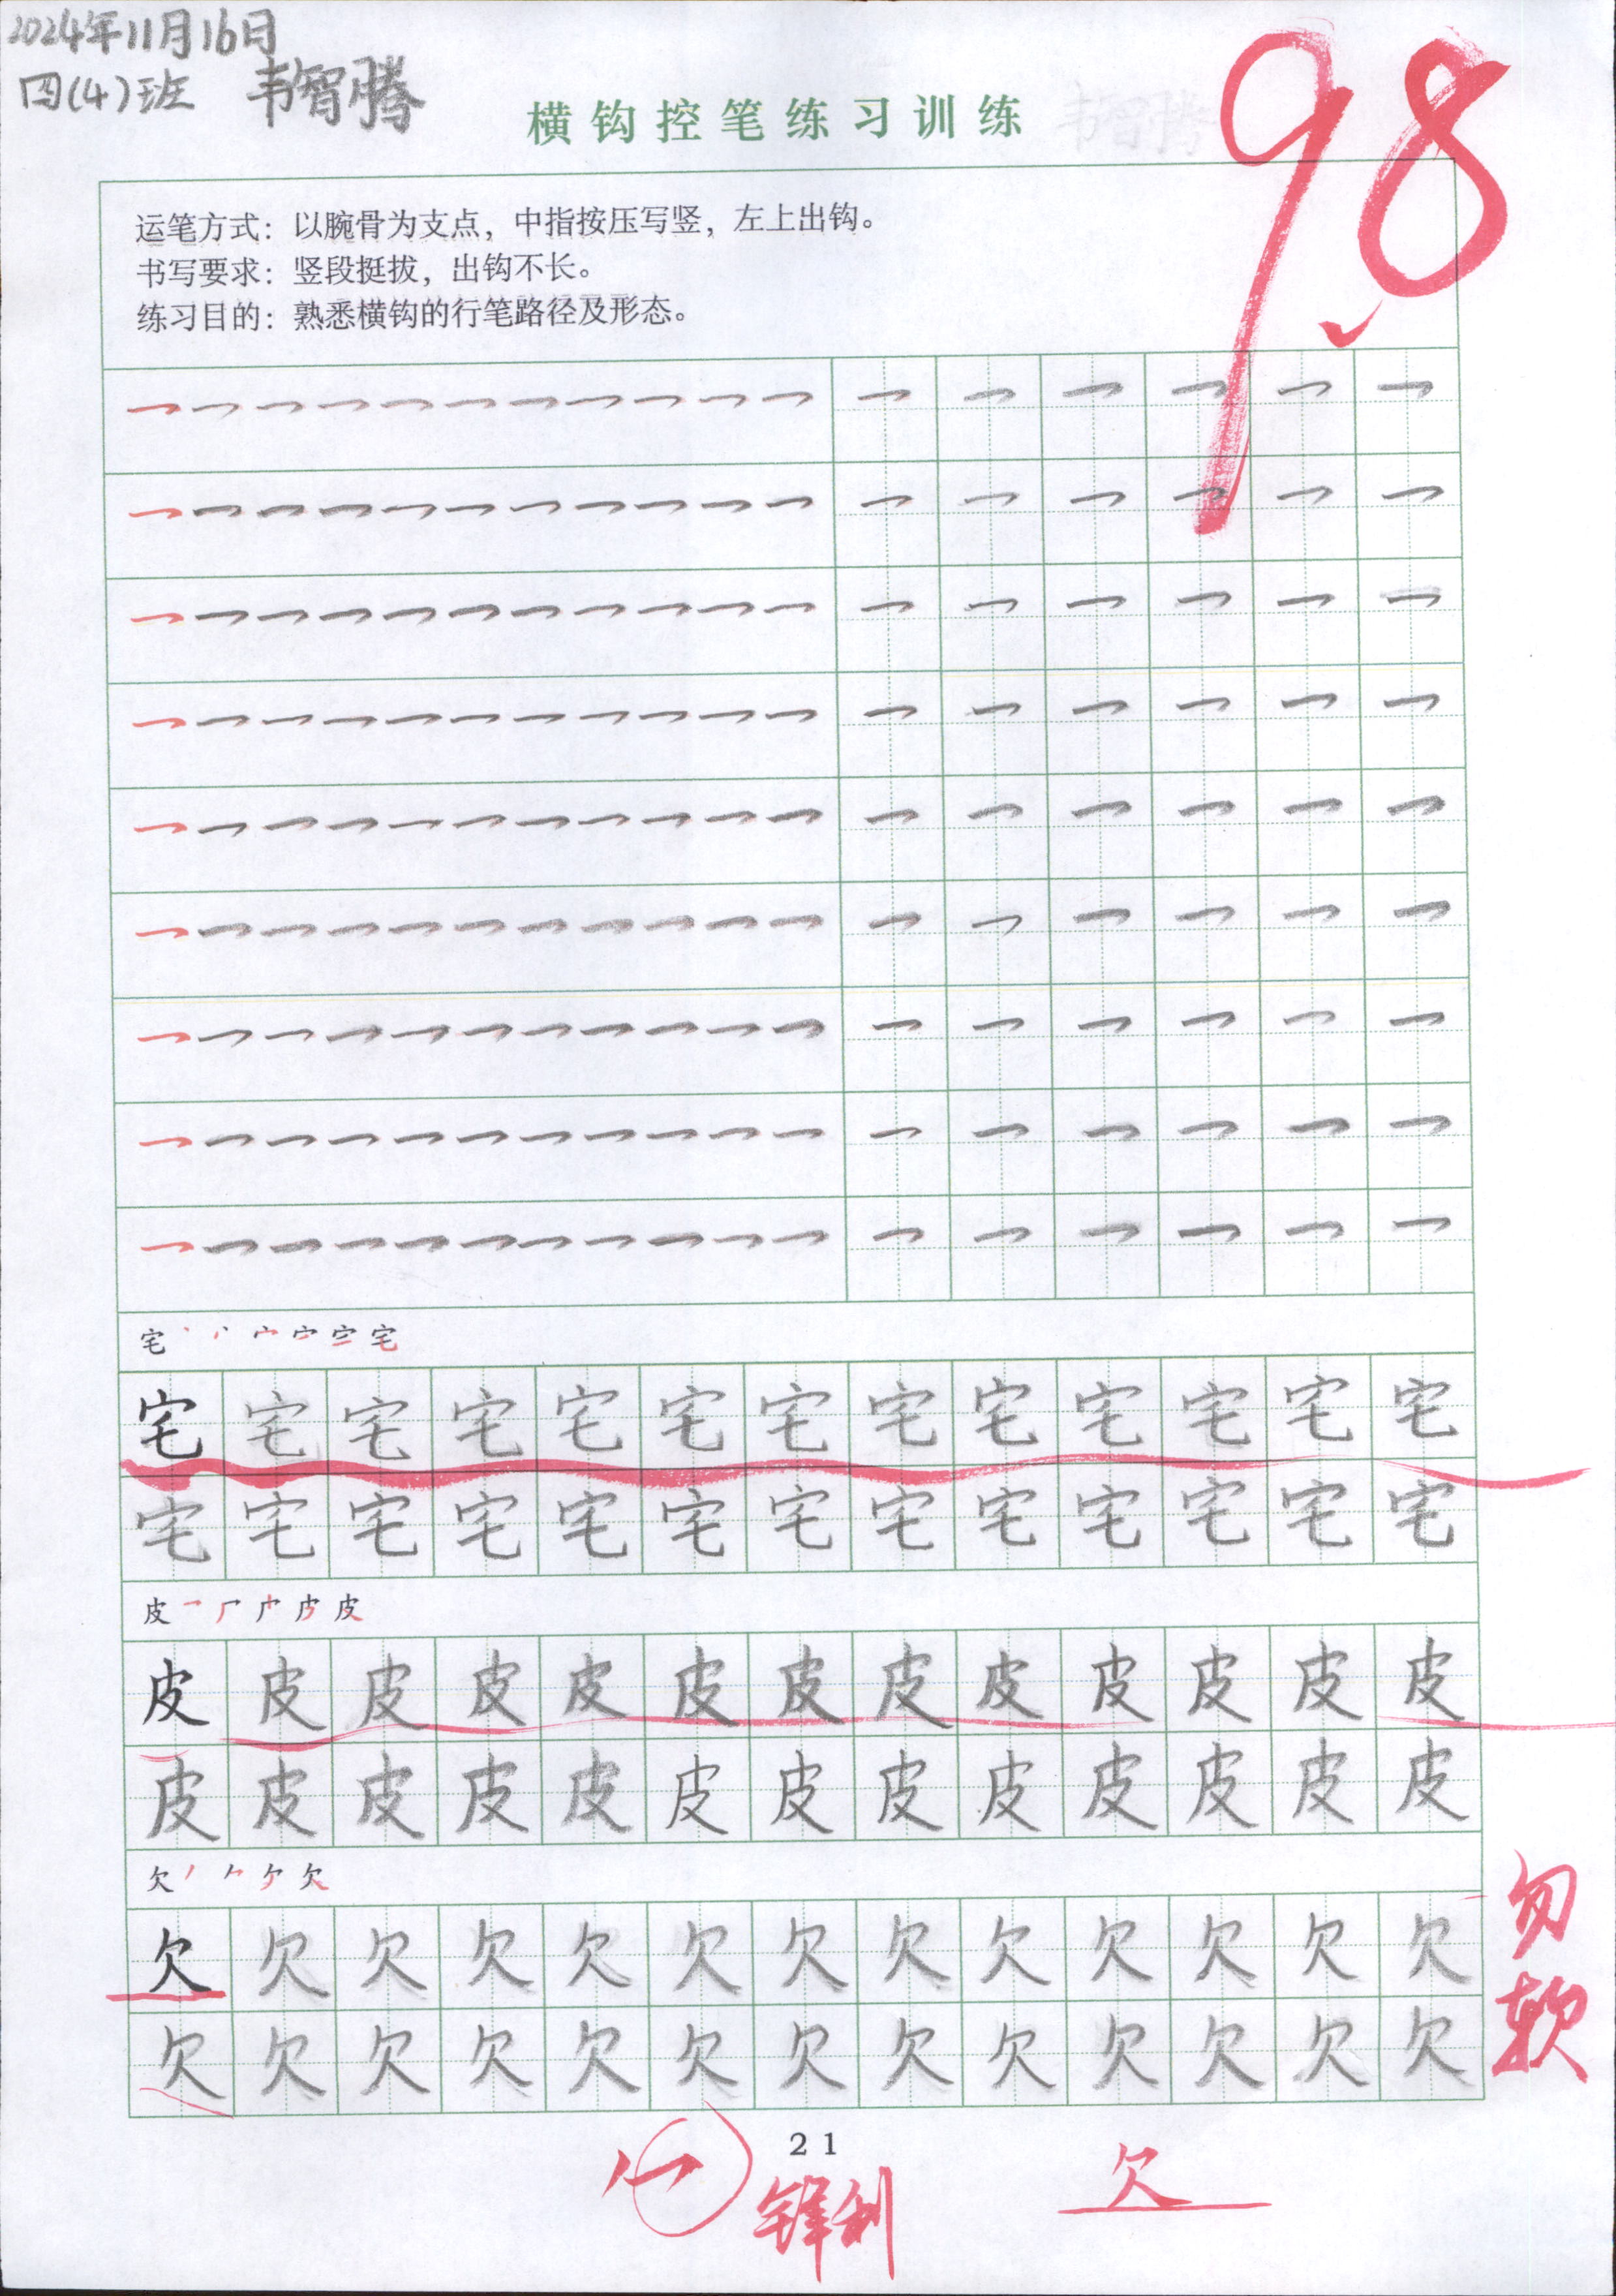 2024年11月16日
四(4)班 韦智腾
98
横钩控笔练习训练
韦智腾
运笔方式：以腕骨为支点，中指按压写竖，左上出钩。
书写要求：竖段挺拔，出钩不长。
练习目的：熟悉横钩的行笔路径及形态。
宅
宅宅宅宅宅宅宅宅宅宅宅宅宅
宅宅宅宅宅宅宅宅宅宅宅宅宅
皮
皮皮皮皮皮皮皮皮皮皮皮皮皮
皮皮皮皮皮皮皮皮皮皮皮皮皮
欠
欠欠欠欠欠欠欠欠欠欠欠欠欠
欠欠欠欠欠欠欠欠欠欠欠欠欠
勿软
21
锋利
欠